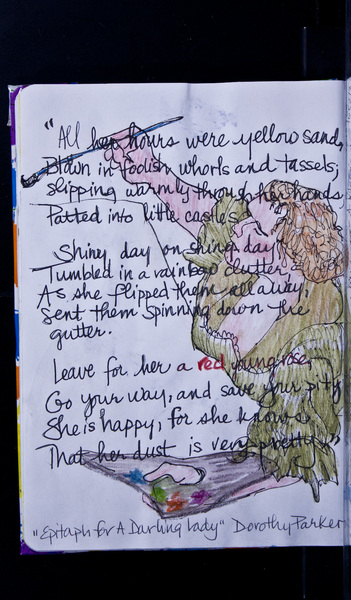 "All her hours were yellow sand,
Blown in foolish whorls and tassels;
Slipping warmly through her hands
Patted into little castles.
Shiny day on shiny day
Tumbled in a rainbow clutter,
As she flipped them all away,
Sent them spinning down the
gutter.
Leave for her a red young rose,
Go your way, and save your pity
She is happy, for she knows
That her dust is very pretty."
"Epitaph for A Darling Lady" Dorothy Parker